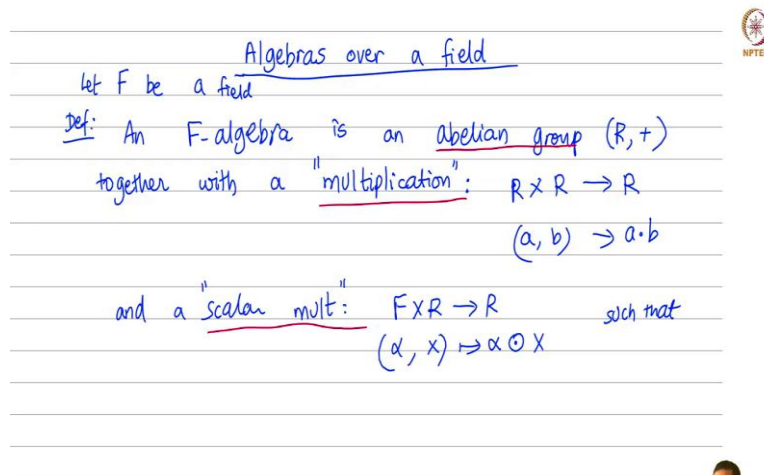 Algebras over a field
Let F be a field
Def: An F-algebra is an abelian group (R, +)
together with a "multiplication": R × R → R
(a, b) → a·b
and a "scalar mult": F × R → R such that
(α, x) ↦ α ⊙ x
NPTE